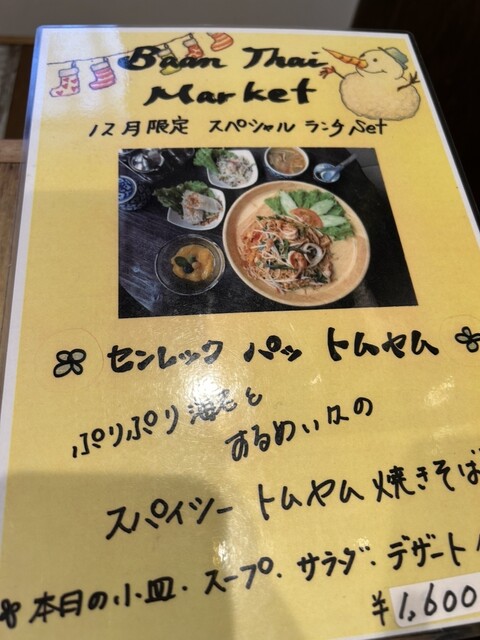 Baan Thai
Market
12月限定 スペシャル ランチ Set
センレック パッ トムヤム
ぷりぷり海老と
するめいかの
スパイシー トムヤム焼きそば
本日の小皿・スープ・サラダ・デザート
¥1,600